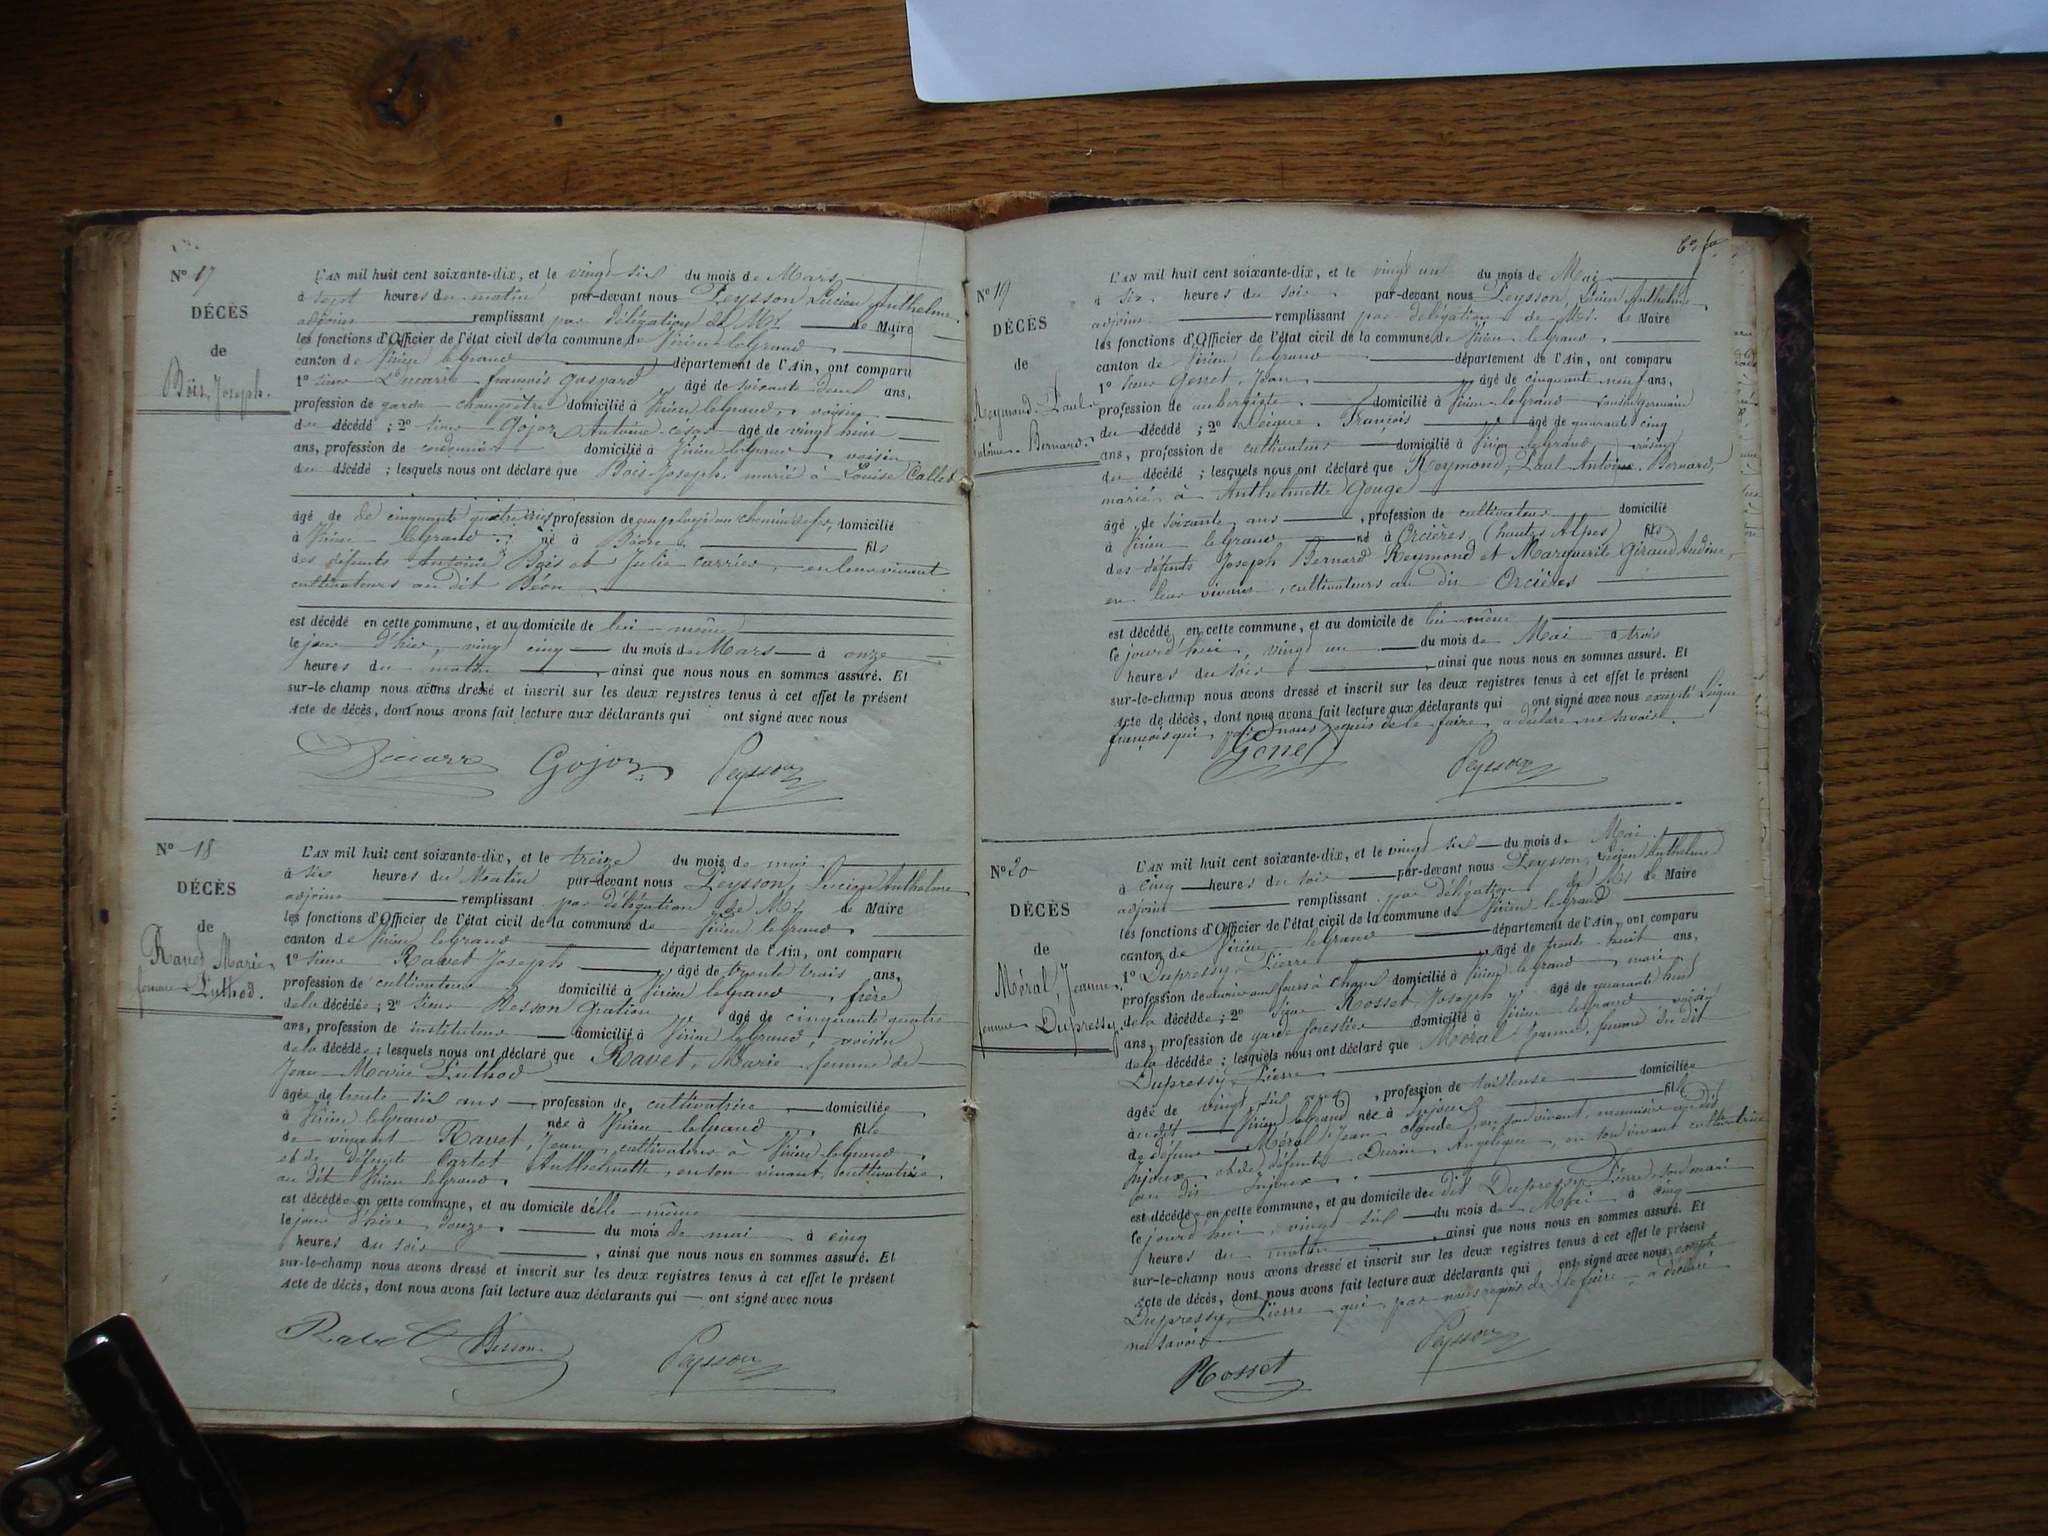 N° 17
DÉCÈS
de
Bois, Joseph.
L'AN mil huit cent soixante-dix, et le vingt six du mois de Mars
à sept heures du matin par-devant nous Peysson, Lucien Anthelme
adjoint remplissant par délégation de Mr. le Maire
les fonctions d'Officier de l'état civil de la commune de Virieu le grand
canton de Virieu le grand département de l'Ain, ont comparu
1° sieur françois gaspard âgé de soixante deux ans,
profession de garde champêtre domicilié à Virieu le grand, voisin
du décédé ; 2° sieur Gojoz Antoine César âgé de vingt huit
ans, profession de cordonnier domicilié à Virieu le grand, voisin
du décédé ; lesquels nous ont déclaré que Bois Joseph, marié à Louise Callet
âgé de de cinquante quatre ans profession de employé au chemin de fer, domicilié
à Virieu le grand né à Béon fils
des défunts Antoine Bois et Julie carrier, en leur vivant
cultivateurs au dit Béon
est décédé en cette commune, et au domicile de lui-même
le jour d'hier, vingt cinq du mois de Mars à onze
heures du matin, ainsi que nous nous en sommes assuré. Et
sur-le-champ nous avons dressé et inscrit sur les deux registres tenus à cet effet le présent
acte de décès, dont nous avons fait lecture aux déclarants qui ont signé avec nous
Gojoz Peysson
N° 18
DÉCÈS
de
Ravet Marie,
femme Luthod.
L'AN mil huit cent soixante-dix, et le treize du mois de mai
à six heures du Matin par-devant nous Peysson, Lucien Anthelme
adjoint remplissant par délégation de Mr. le Maire
les fonctions d'Officier de l'état civil de la commune de Virieu le grand
canton de Virieu le grand département de l'Ain, ont comparu
1° sieur Ravet Joseph âgé de trente trois ans,
profession de cultivateur domicilié à Virieu le grand, frère
de la décédée ; 2° sieur Besson Gratien âgé de cinquante quatre
ans, profession de instituteur domicilié à Virieu le grand, voisin
de la décédée ; lesquels nous ont déclaré que Ravet, Marie femme de
Jean Marie Luthod
âgée de trente six ans profession de cultivatrice domiciliée
à Virieu le grand née à Virieu le grand fille
de vivant Ravet, Jean, cultivateur à Virieu le grand,
et de défunte Cartet Anthelmette, en son vivant cultivatrice
au dit Virieu le grand.
est décédée en cette commune, et au domicile d'elle même
le jour d'hier douze du mois de mai à cinq
heures du soir, ainsi que nous nous en sommes assuré. Et
sur-le-champ nous avons dressé et inscrit sur les deux registres tenus à cet effet le présent
acte de décès, dont nous avons fait lecture aux déclarants qui — ont signé avec nous
Ravet Besson Peysson
N° 19
DÉCÈS
de
Reymond Paul
Antoine Bernard.
L'AN mil huit cent soixante-dix, et le vingt un du mois de Mai
à six heures du soir par-devant nous Peysson, Lucien Anthelme
adjoint remplissant par délégation de Mr. le Maire
les fonctions d'Officier de l'état civil de la commune de Virieu le grand
canton de Virieu le grand département de l'Ain, ont comparu
1° sieur Genet, Jean âgé de cinquante neuf ans,
profession de aubergiste domicilié à Virieu le grand cousin germain
du décédé ; 2° Seigne François âgé de quarante cinq
ans, profession de cultivateur domicilié à Virieu le grand, voisin
du décédé ; lesquels nous ont déclaré que Reymond, Paul Antoine Bernard,
marié à Anthelmette Gouge
âgé de soixante ans, profession de cultivateur domicilié
à Virieu le grand né à Orcières (hautes Alpes) fils
des défunts Joseph Bernard Reymond et Marguerite Giraud Audine,
en leur vivant, cultivateurs au dit Orcières
est décédé en cette commune, et au domicile de lui même
le jourd'hui, vingt un du mois de Mai à trois
heures du soir, ainsi que nous nous en sommes assuré. Et
sur-le-champ nous avons dressé et inscrit sur les deux registres tenus à cet effet le présent
acte de décès, dont nous avons fait lecture aux déclarants qui ont signé avec nous excepté Seigne
françois qui par nous requis de le faire a déclaré ne savoir.
Genet Peysson
N° 20
DÉCÈS
de
Méral, Jeanne,
femme Dupressy
L'AN mil huit cent soixante-dix, et le vingt six du mois de Mai
à cinq heures du soir par-devant nous Peysson, Lucien Anthelme
adjoint remplissant par délégation de Mr le Maire
les fonctions d'Officier de l'état civil de la commune de Virieu le grand
canton de Virieu le grand département de l'Ain, ont comparu
1° Dupressy, Pierre âgé de trente huit ans,
profession de fours à chaux domicilié à Virieu le grand, mari
de la décédée ; 2° sieur Rosset, Joseph âgé de quarante huit
ans, profession de garde forestier domicilié à Virieu le grand voisin
de la décédée ; lesquels nous ont déclaré que Méral Jeanne, femme du dit
Dupressy, Pierre
âgée de vingt six ans, profession de tailleuse domiciliée
au dit Virieu le grand née à Injoux fille
de défunt Méral, Jean claude, en son vivant
Injoux, et de défunte Angélique, en son vivant cultivatrice
au dit Injoux
est décédée en cette commune, et au domicile de dit Dupressy, Pierre son mari
le jourd'hui, vingt six du mois de Mai à cinq
heures du matin, ainsi que nous nous en sommes assuré. Et
sur-le-champ nous avons dressé et inscrit sur les deux registres tenus à cet effet le présent
acte de décès, dont nous avons fait lecture aux déclarants qui ont signé avec nous, excepté
Dupressy, Pierre qui par nous requis de le faire, a déclaré
ne savoir
Rosset Peysson